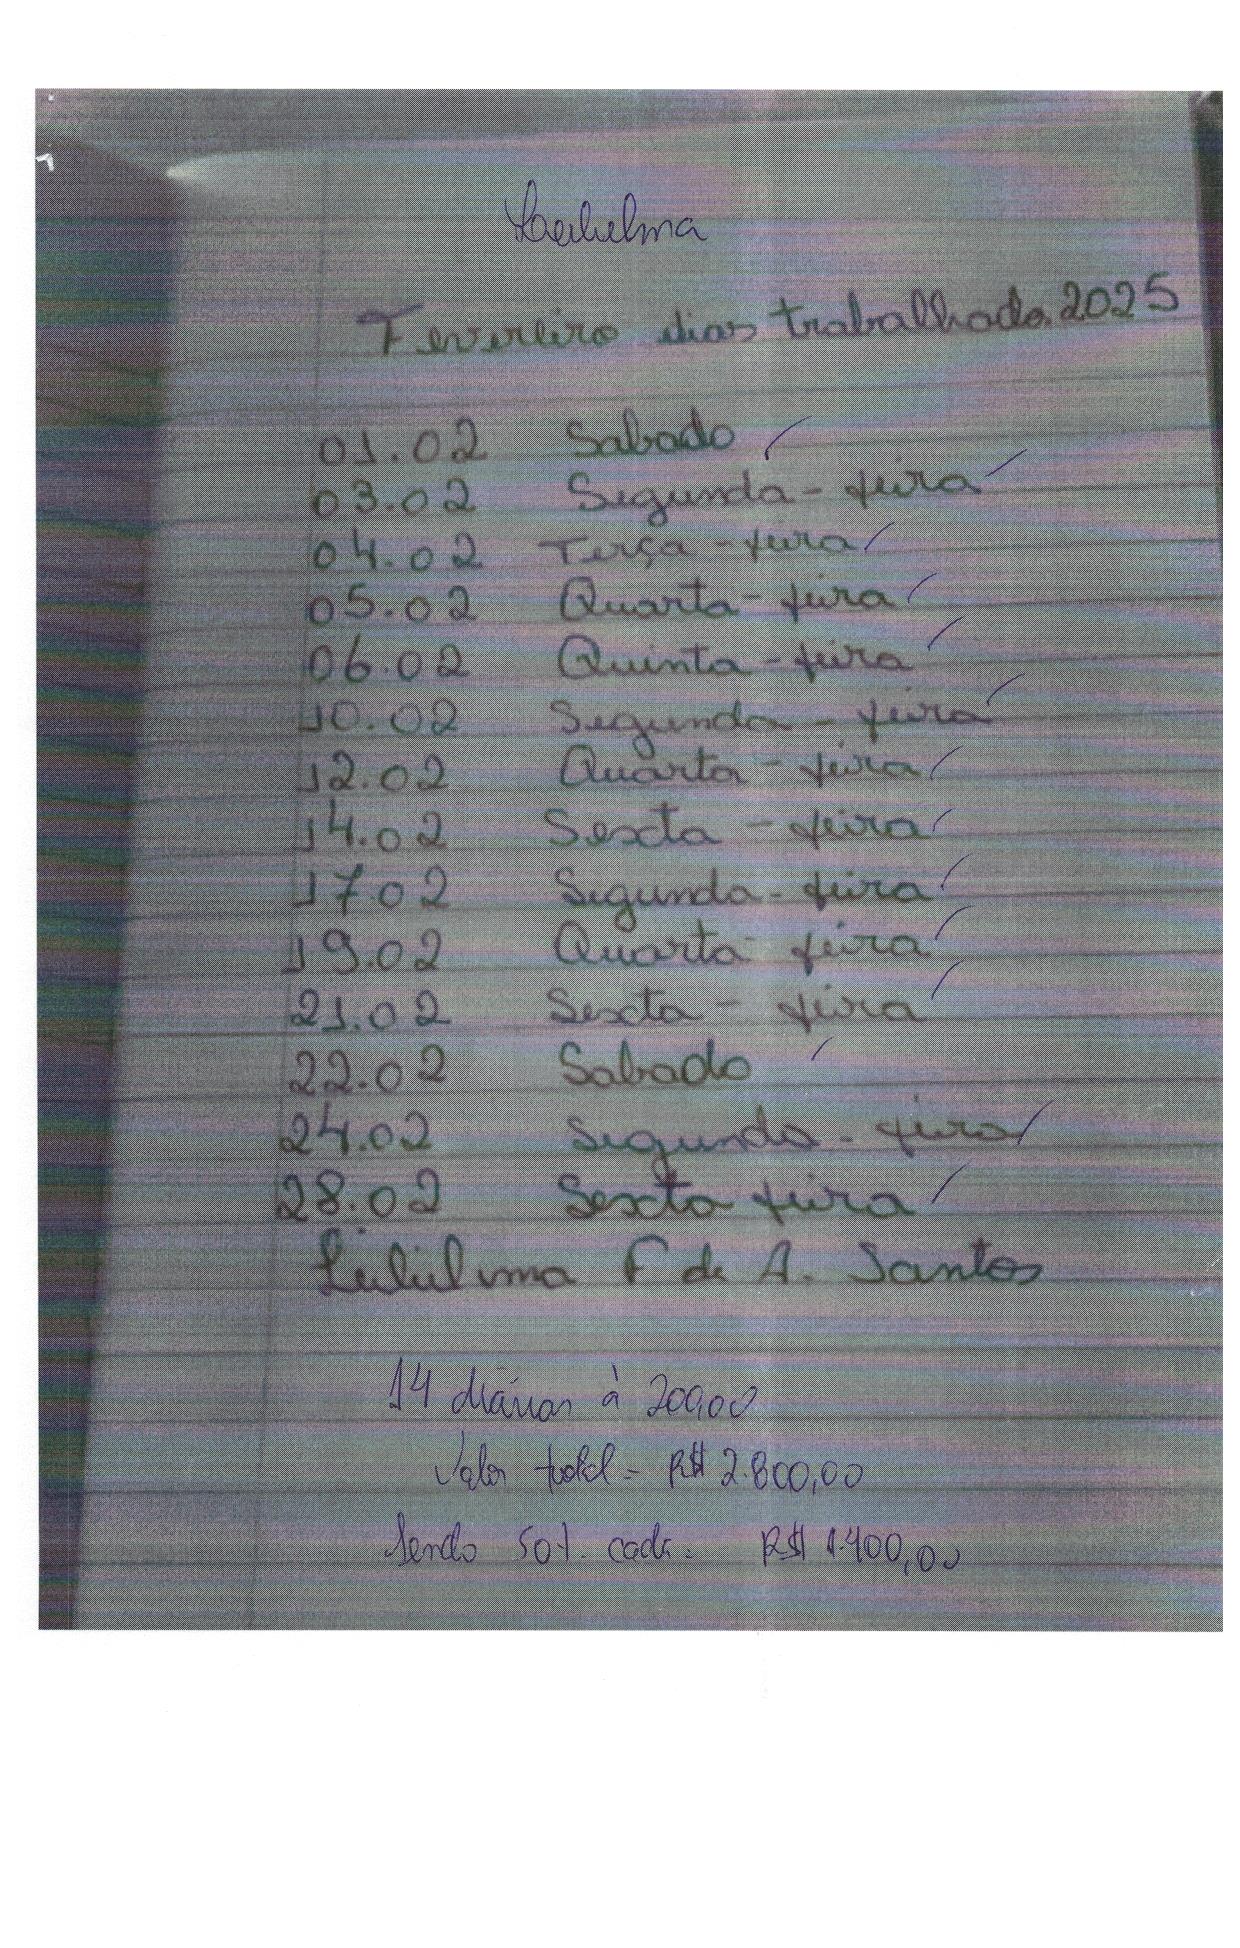 Leidielma
Fevereiro dias trabalhado 2025
01.02 Sabado
03.02 Segunda-feira
04.02 Terça-feira
05.02 Quarta-feira
06.02 Quinta-feira
10.02 Segunda-feira
12.02 Quarta-feira
14.02 Sexta-feira
17.02 Segunda-feira
19.02 Quarta-feira
21.02 Sexta-feira
22.02 Sabado
24.02 Segunda-feira
28.02 Sexta feira
F de A. Santos
14 diárias à 200,00
Valor total = R$ 2.800,00
Sendo 50% cada. R$ 1.400,00